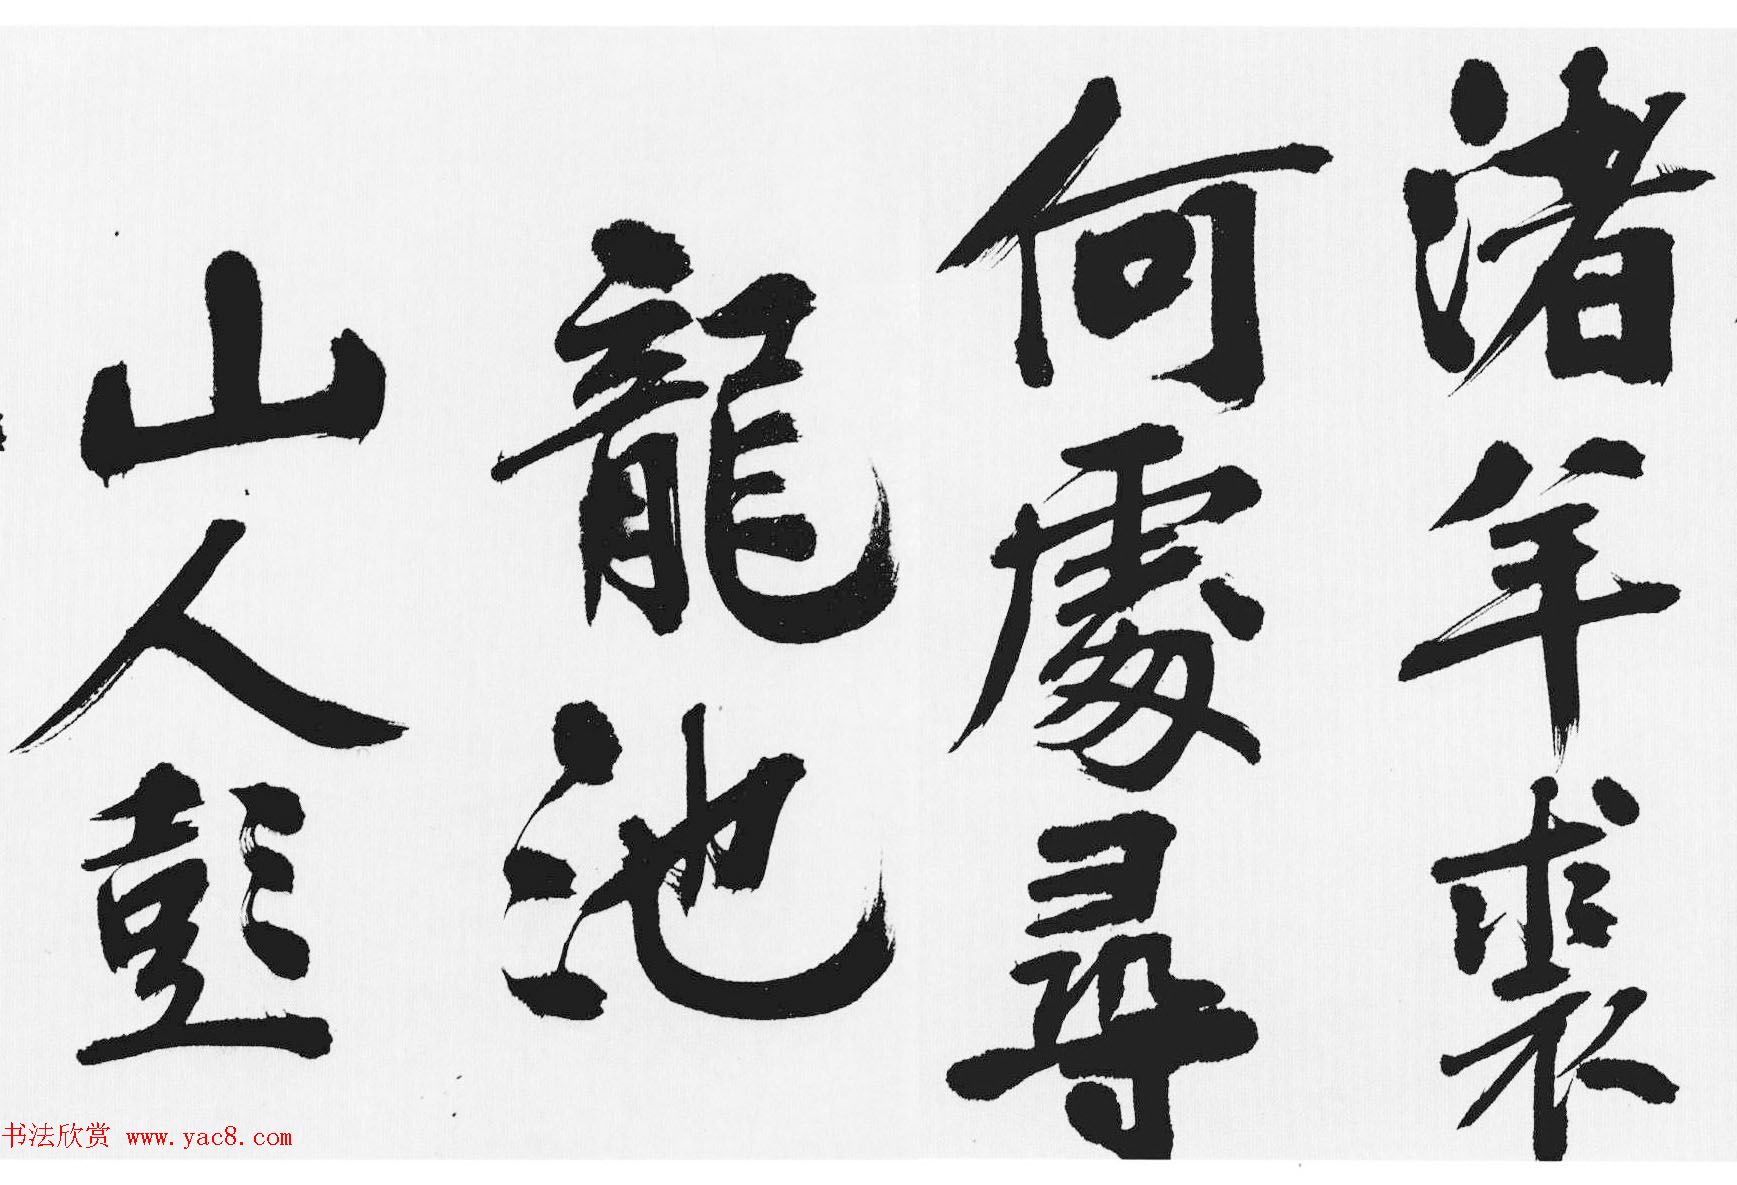 渚羊裘
何處尋
龍池
山人彭
书法欣赏 www.yac8.com